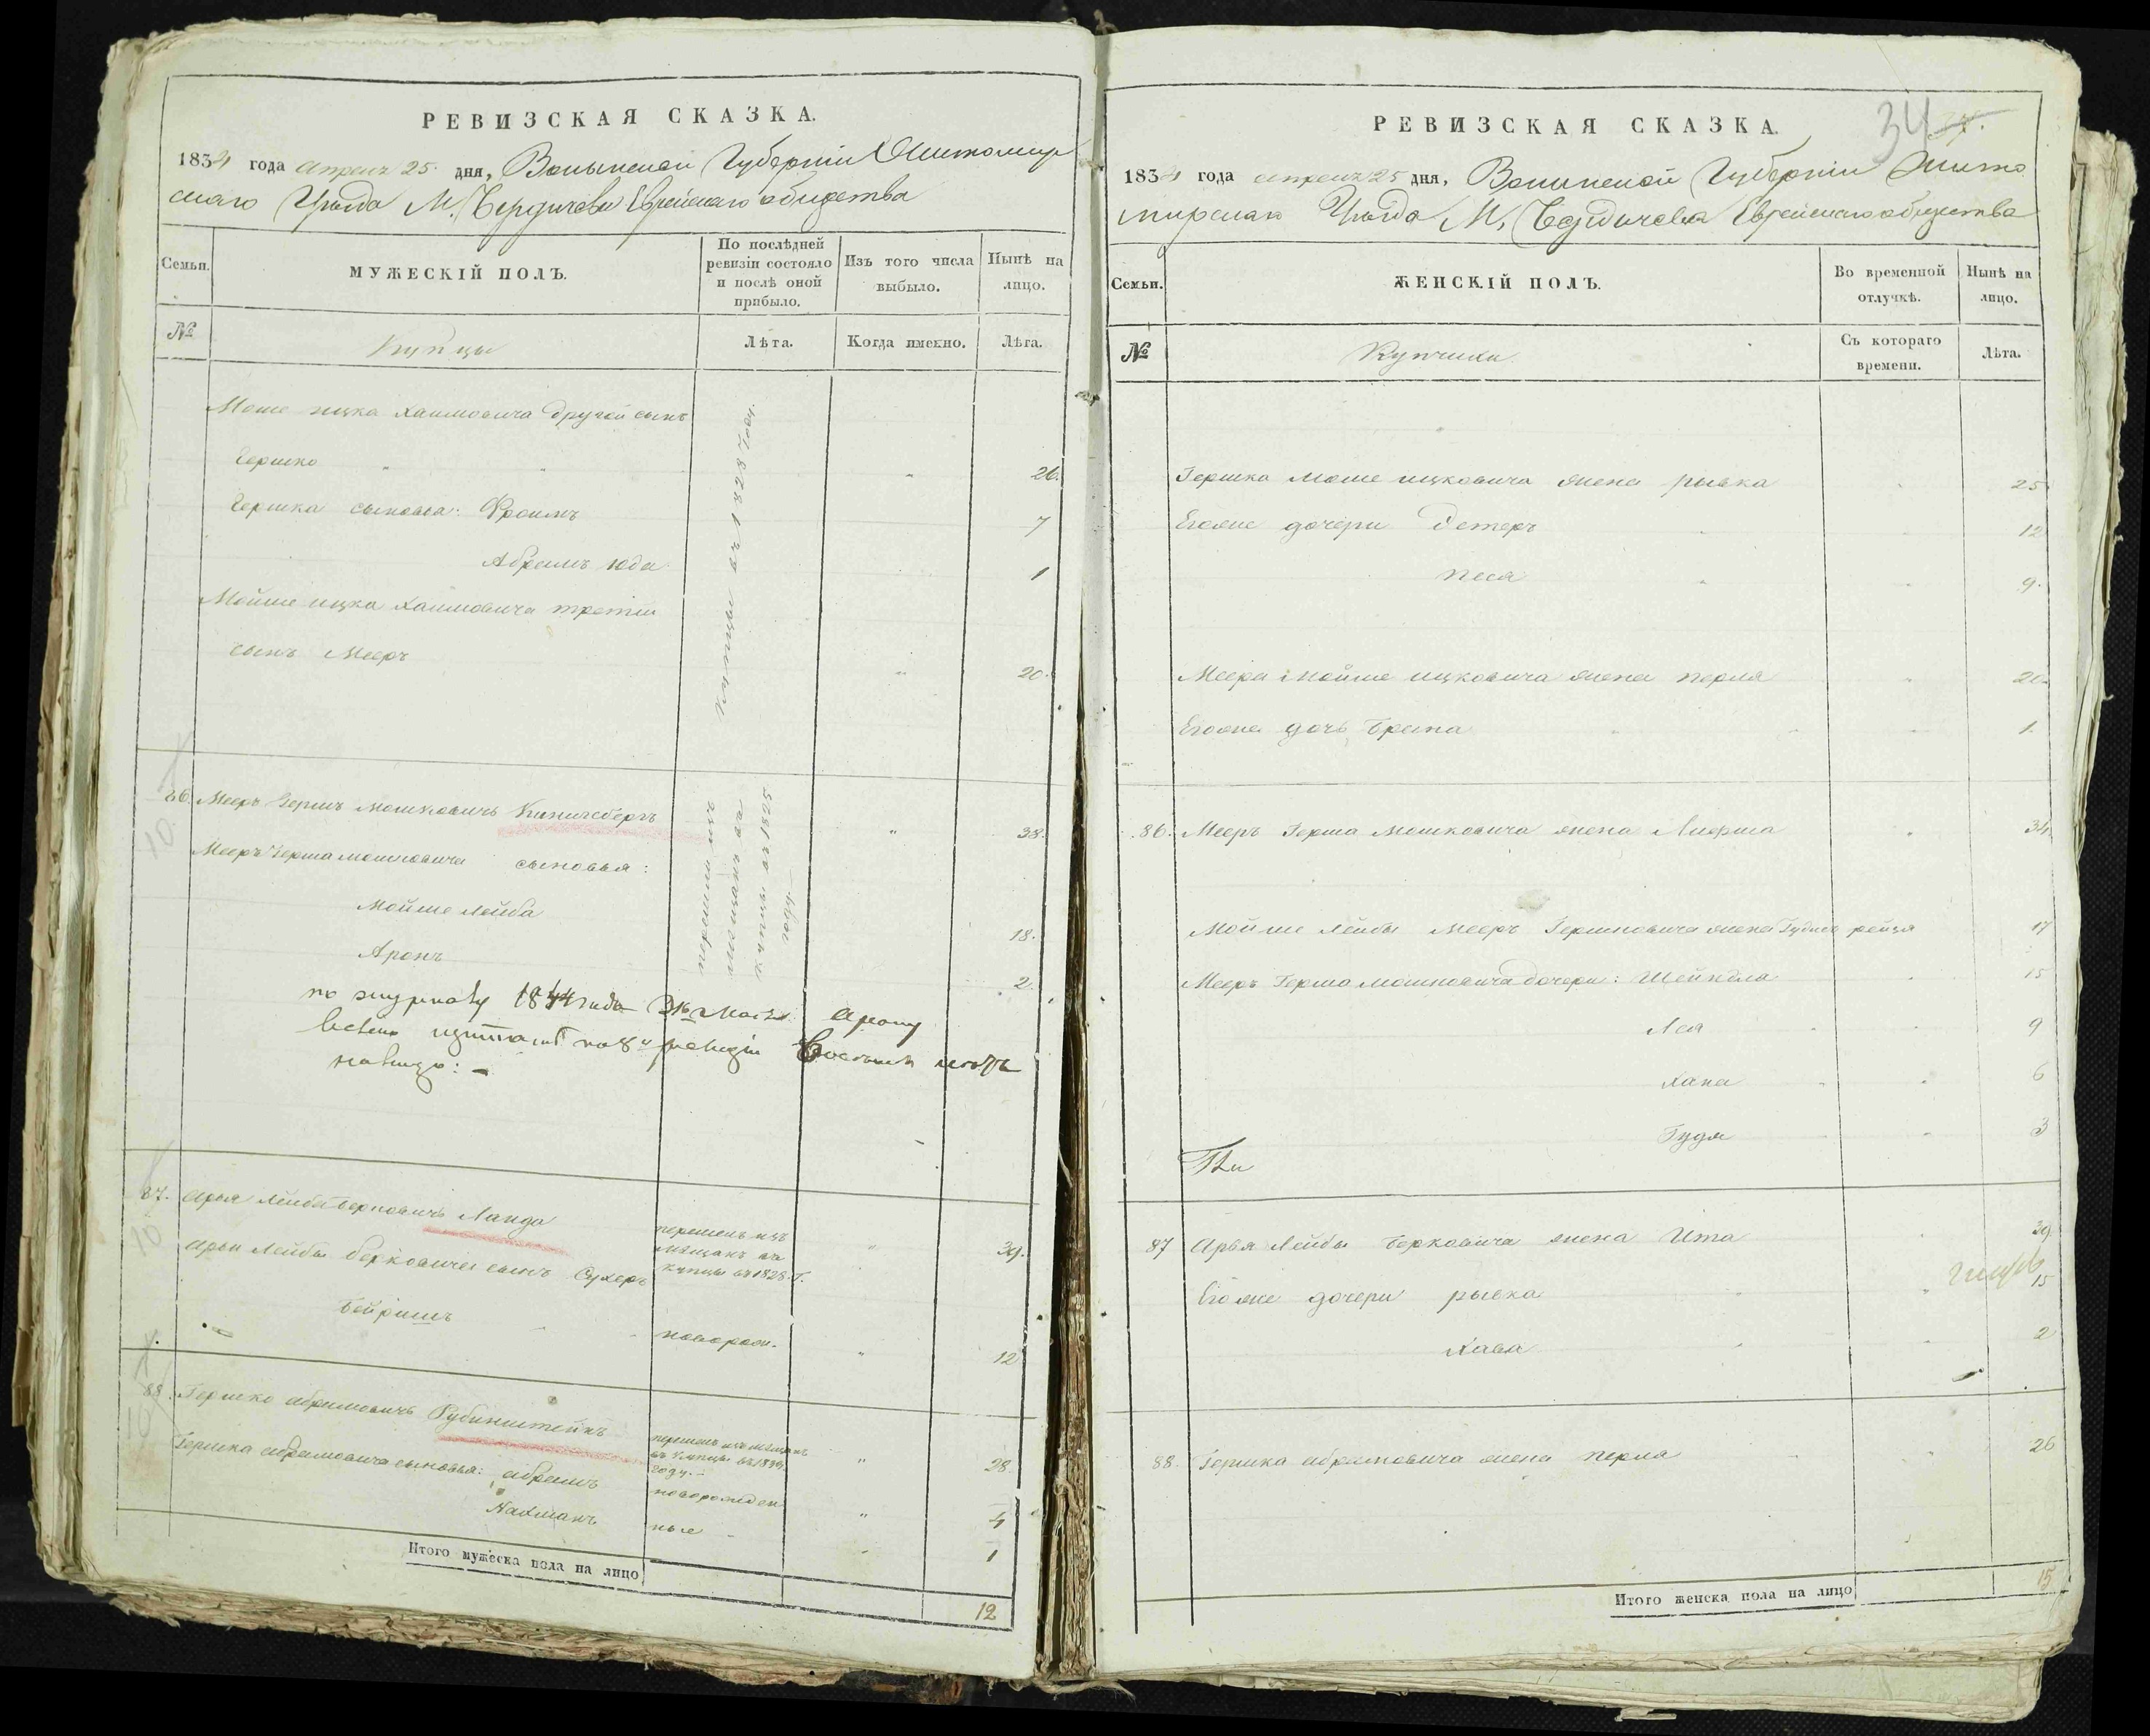 РЕВИЗСКАЯ СКАЗКА.
1834 года апреля 25 дня, Волынской Губернии Житомир
скаго Уезда М. Бердичева Еврейскаго общества
Семьи.
МУЖЕСКІЙ ПОЛЪ.
По послѣдней ревизіи состояло и послѣ оной прибыло.
Изъ того числа выбыло.
Нынѣ на лицо.
№
Купцы
Лѣта.
Когда именно.
Лѣта.
Моше ицка Хаимовича другой сынъ
Гершко 26.
Гершка сыновья: Фроимъ 7
Абрамъ юда 1
Мойше ицка Хаимовича третій
сынъ Мееръ 20.
купцы въ 1828 году.
86. Мееръ Гершъ Мошковичъ Кинигсбергъ 38.
Мееръ Герша Мошковича сыновья:
Мойше Лейба 18.
Аронъ 2.
перешли изъ
мещанъ въ
купцы по 1825
году.
10
по журналу 1844 года Арону
навицо: -
87. Арья Лейба Берковичъ Ланда 39.
перешелъ изъ
мещанъ въ
купцы въ 1828 г.
Арьи Лейбы Берковича сынъ Сухеръ
Бейришъ новорож. 12.
10
88. Гершко Абрамовичъ Рубинштейнъ 28.
перешелъ изъ мещанъ
въ купцы въ
году.
Гершка Абрамовича сыновья: Абрамъ новорожден 4
Нахманъ ные 1
10
Итого мужеска пола на лицо
12
РЕВИЗСКАЯ СКАЗКА.
34
1834 года апреля 25 дня, Волынской Губернии Жито
мирскаго Уезда М. Бердичева Еврейскаго общества
Семьи.
ЖЕНСКІЙ ПОЛЪ.
Во временной отлучкѣ.
Нынѣ на лицо.
№
Купчихи
Съ котораго времени.
Лѣта.
Гершка Моше ицковича жена рывка 25
Егоже дочери Детеръ 12
песя 9.
Меера Мойше ицковича жена перля 20.
Егоже дочь Брана 1.
86. Мееръ Герша Мошковича жена Лифша 34
Мойше Лейбы Мееръ Гершковича жена рейзя 17
Мееръ Герша Мошковича дочери: Шейндля 15
Лея 9
Хана 6
Гудя 3
87 Арья Лейбы Берковича жена Ита 39.
Егоже дочери рывка 15
Хава 2
88. Гершка Абрамовича жена перла 26
Итого женска пола на лицо
15